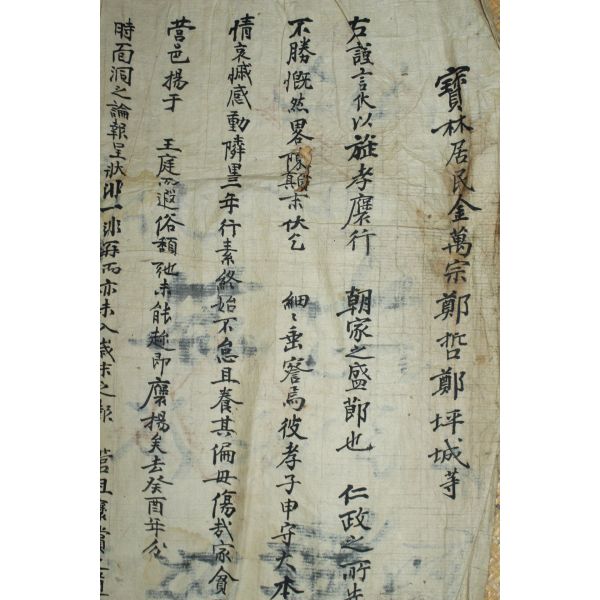 寶林居民金萬宗鄭哲鄭坪城等
右謹言伏以旌孝褒行 朝家之盛節也 仁政之所先
不勝慨然畧陳顛末伏乞 細細垂察焉彼孝子申守大本
情哀慽感動隣里三年行素終始不怠且養其偏母傷哉家貧
營邑揚于 王庭而遐俗頹弛未能趂即褒揚矣去癸酉年分
時面洞之論報呈狀非一非再而亦未入歲末之報 營且褒賞